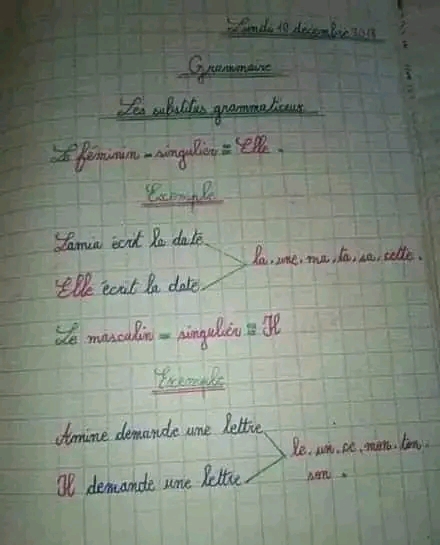 Lundi 10 décembre 2018
Grammaire
Les substituts grammaticaux
Le féminin - singulier = Elle.
Exemple
Lamia écrit la date
Elle écrit la date.
la, une, ma, ta, sa, cette.
Le masculin - singulier = Il
Exemple
Amine demande une lettre
Il demande une lettre
le, un, ce, mon, ton,
son.